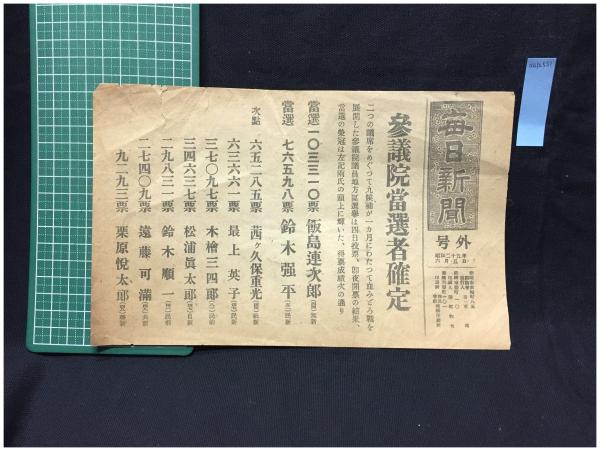 毎日新聞
号外
昭和二十五年
六月五日
參議院當選者確定
二つの議席をめぐつて九候補が一カ月にわたつて血みどろ戰を
展開した參議院議員地方區選擧は四日投票、卽夜開票の結果、
當選の榮冠は左記兩氏の頭上に輝いた、得票成績次の通り
當選 一〇三三一〇票 飯島連次郎
當選 七六五九八票 鈴木强平
次點 六五二八五票 茜ケ久保重光
六三六六一票 最上英子
三七〇九七票 木檜三四郎
三四六三七票 松浦眞太郎
二九八三一票 鈴木順一
二七四〇九票 遠藤可滿
九二九三票 栗原悅太郎